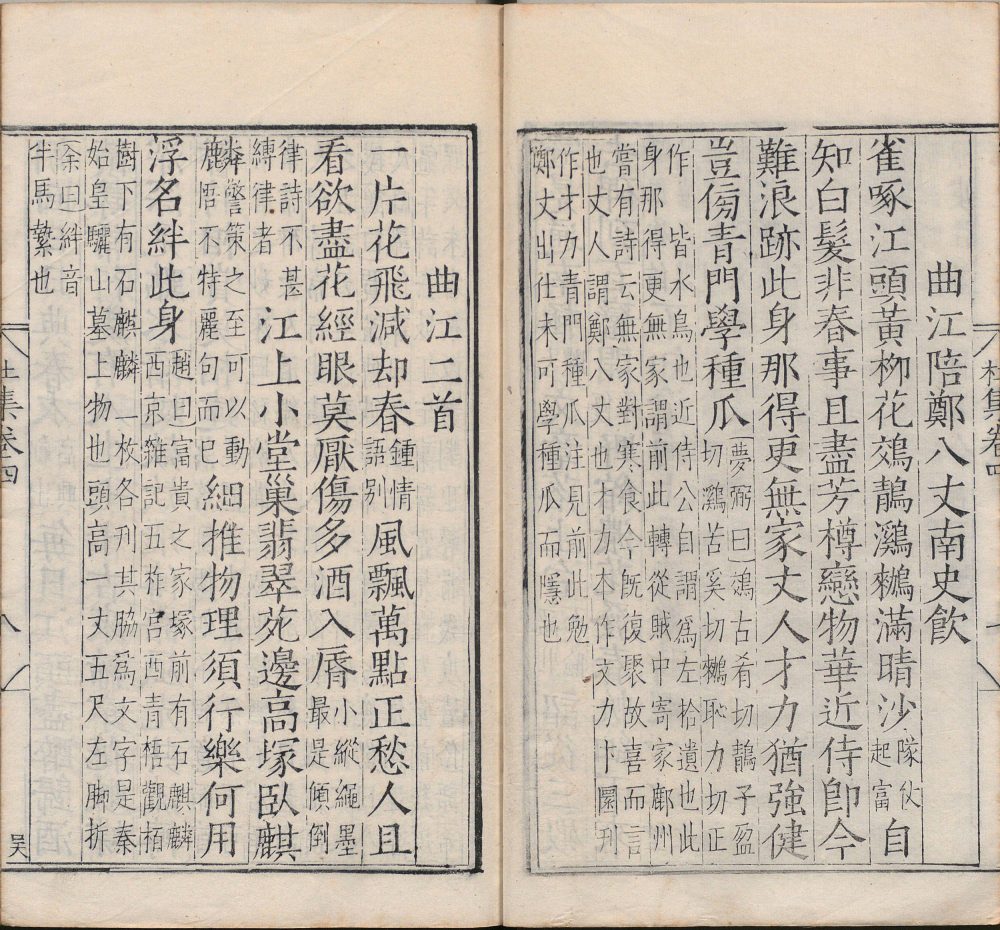 曲江陪鄭八丈南史飲
雀啄江頭黃柳花鵁鶄鸂鶒滿晴沙隊仗起富自
知白髮非春事且盡芳樽戀物華近侍卽今
難浪跡此身那得更無家丈人才力猶強健
豈傍青門學種瓜夢弼曰鵁古肴切鶄子盈
切鸂苦奚切鶒恥力切正
作 皆水鳥也近侍公自謂爲左拾遺也此
身那得更無家謂前此轉從賊中寄家鄜州
嘗有詩云無家對寒食今旣復聚故喜而言
也丈人謂鄭八丈也才力本作文力卞圜刊
作才力青門種瓜注見前此勉
鄭丈出仕未可學種瓜而隱也
杜集卷四
曲江二首
一片花飛減却春鍾情語别風飄萬點正愁人且
看欲盡花經眼莫厭傷多酒入脣小縱繩墨最是傾倒
律詩不甚
縛律者
江上小堂巢翡翠苑邊高塚臥麒
麟警策之至可以動
悟不特麗句而已細推物理須行樂何用
浮名絆此身趙曰富貴之家塚前有石麒麟
西京雜記五柞宮西青梧觀栢
樹下有石麒麟一枚各刊其脇爲文字是秦
始皇驪山墓上物也頭高一丈五尺左脚折
余曰絆音
半馬縶也
杜集卷四
八
吴